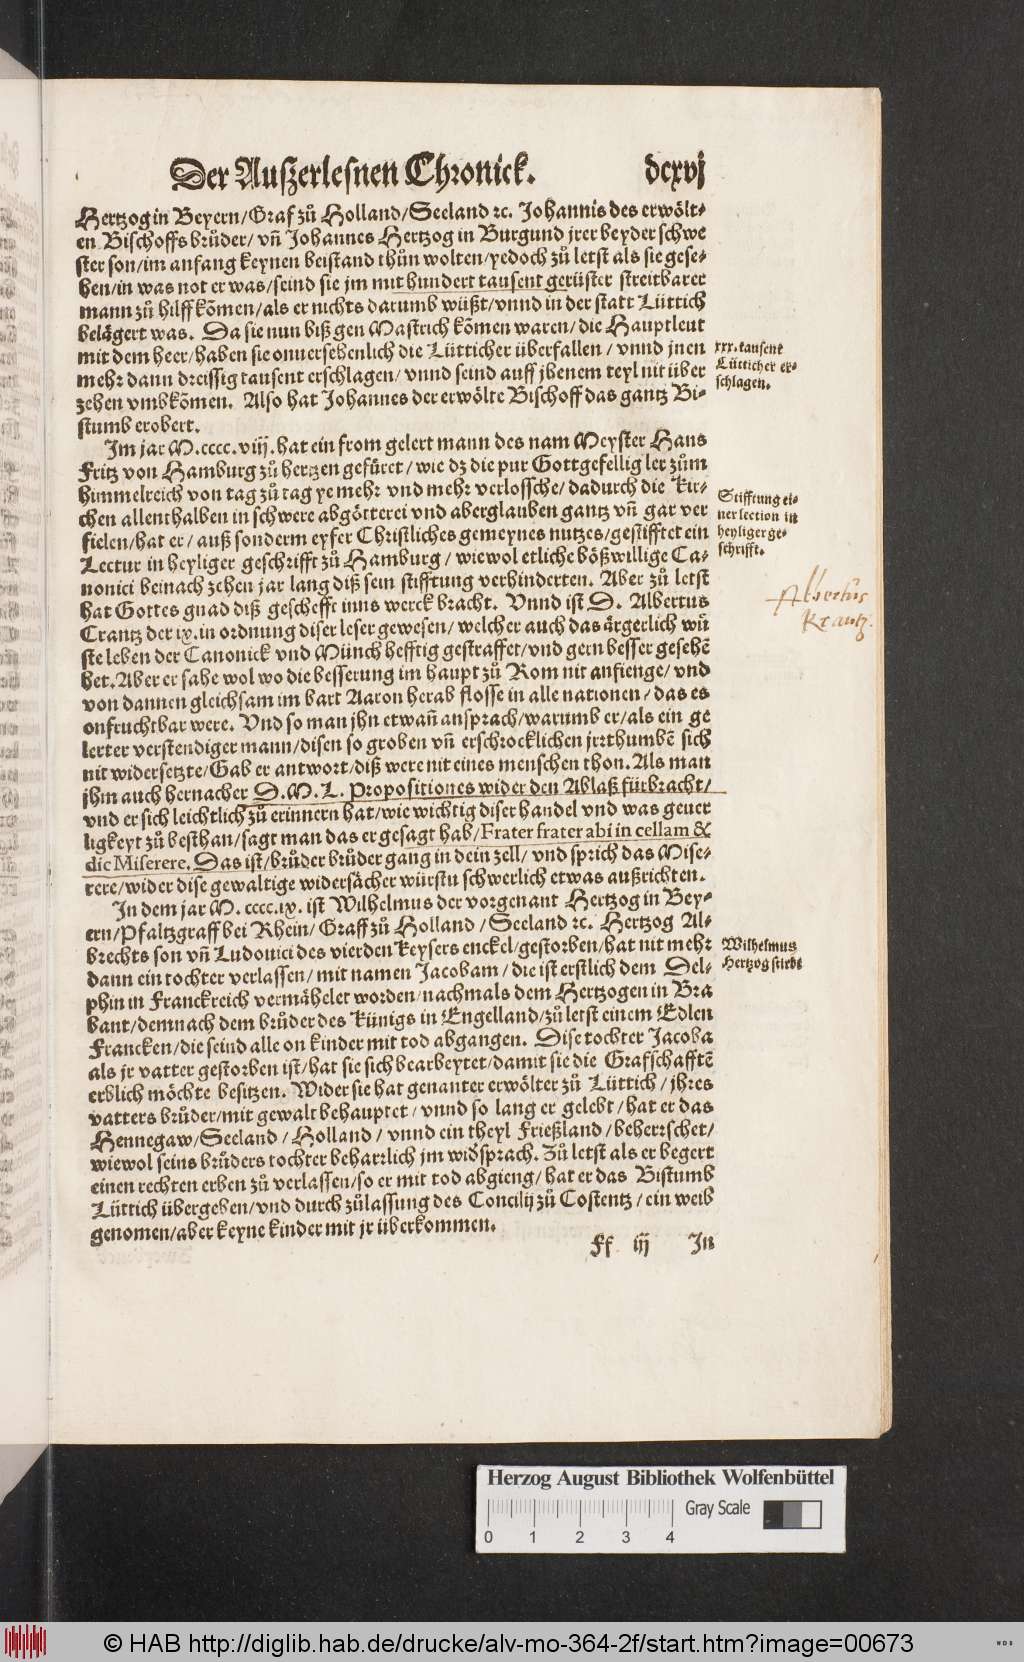 Der Außerlesnen Chronick. dcxvj
Hertzog in Beyern/Graf zů Holland/Seeland ꝛc. Johannis des erwölt⸗
en Bischoffs brůder/ vñ Johannes Hertzog in Burgund jrer beyder schwe
ster son/im anfang keynen beistand thůn wolten/yedoch zů letst als sie gese⸗
hen/in was not er was/seind sie jm mit hundert tausent gerüster streitbarer
mann zů hilff kõmen/als er nichts darumb wüßt/vnnd in der statt Lüttich
belägert was. Da sie nun biß gen Mastrich kõmen waren/die Hauptleut
mit dem heer/haben sie onuersehenlich die Lütticher überfallen/ vnnd jnen
mehr dann dreissig tausent erschlagen/ vnnd seind auff jhenem teyl nit über
zehen vmbkõmen. Also hat Johannes der erwölte Bischoff das gantz Bi⸗
stumb erobert.
xxx. tausent
Lütticher er⸗
schlagen.
Im jar M.cccc.viij. hat ein from gelert mann des nam Meyster Hans
Fritz von Hamburg zů hertzen gefüret/ wie dz die pur Gottgefellig ler zům
himmelreich von tag zů tag ye mehr vnd mehr verlossche/ dadurch die Kir⸗
chen allenthalben in schwere abgötterei vnd aberglauben gantz vñ gar ver
fielen/hat er/ auß sonderm eyfer Christliches gemeynes nutzes/gestifftet ein
Lectur in heyliger geschrifft zů Hamburg/ wiewol etliche bößwillige Ca⸗
nonici beinach zehen jar lang diß sein stifftung verhinderten. Aber zů letst
hat Gottes gnad diß geschefft inns werck bracht. Vnnd ist D. Albertus
Crantz der ix. in ordnung diser leser gewesen/ welcher auch das ärgerlich wů
ste leben der Canonick vnd Münch hefftig gestraffet/vnd gern besser gesehẽ
het. Aber er sahe wol wo die besserung im haupt zů Rom nit anfienge/ vnd
von dannen gleichsam im bart Aaron herab flosse in alle nationen/ das es
onfruchtbar were. Vnd so man jhn etwañ ansprach/warumb er/als ein ge
lerter verstendiger mann/disen so groben vñ erschrocklichen jrrthumbẽ sich
nit widersetzte/Gab er antwort/diß were nit eines menschen thon. Als man
jhm auch hernacher D. M. L. Propositiones wider den Ablaß fürbracht/
vnd er sich leichtlich zů erinnern hat/wie wichtig diser handel vnd was geuer
ligkeyt zů besthan/sagt man das er gesagt hab/Frater frater abi in cellam &
dic Miserere. Das ist/brůder brůder gang in dein zell/ vnd sprich das Mise⸗
rere/wider dise gewaltige widersächer würstu schwerlich etwas außrichten.
Stifftung ei⸗
ner lection in
heyliger ge⸗
schrifft.
Albertus
Krantz.
In dem jar M. cccc.ix. ist Wilhelmus der vorgenant Hertzog in Bey⸗
ern/Pfaltzgraff bei Rhein/ Graff zů Holland/ Seeland ꝛc. Hertzog Al⸗
brechts son vñ Ludouici des vierden Keysers enckel/gestorben/hat nit mehr
dann ein tochter verlassen/ mit namen Jacobam/ die ist erstlich dem Del⸗
phin in Franckreich vermähelet worden/ nachmals dem Hertzogen in Bra
bant/demnach dem brůder des Künigs in Engelland/zů letst einem Edlen
Francken/die seind alle on kinder mit tod abgangen. Dise tochter Jacoba
als jr vatter gestorben ist/hat sie sich bearbeytet/damit sie die Grafschafftẽ
erblich möchte besitzen. Wider sie hat genanter erwölter zů Lüttich/ jhres
vatters brůder/mit gewalt behauptet/ vnnd so lang er gelebt/ hat er das
Hennegaw/Seeland/ Holland/ vnnd ein theyl Frießland/ beherrschet/
wiewol seins brůders tochter beharrlich jm widsprach. Zů letst als er begert
einen rechten erben zů verlassen/so er mit tod abgieng/ hat er das Bistumb
Lüttich übergeben/vnd durch zůlassung des Concilij zů Costentz/ ein weib
genomen/aber keyne kinder mit jr überkommen.
Wilhelmus
Hertzog stirbt
Ff iij In
Herzog August Bibliothek Wolfenbüttel
Gray Scale
0 1 2 3 4
© HAB http://diglib.hab.de/drucke/alv-mo-364-2f/start.htm?image=00673